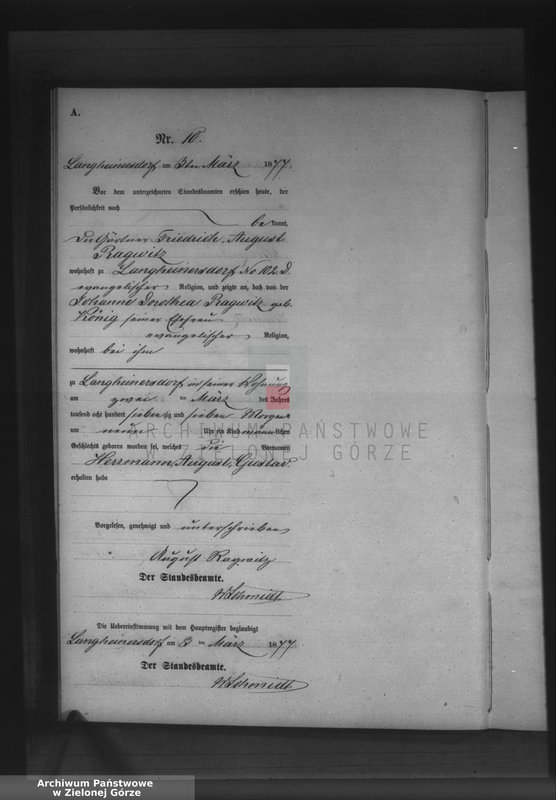 A.
Nr. 10.
Langheinersdorf am 3ten März 1877.
Vor dem unterzeichneten Standesbeamten erschien heute, der
Persönlichkeit nach
bekannt,
der Gärtner Friedrich, August
Ragwitz
wohnhaft zu Langheinersdorf No 102 D.
evangelischer Religion, und zeigte an, daß von der
Johanne Dorothea Ragwitz geb.
König seiner Ehefrau
evangelischer Religion,
wohnhaft bei ihm
zu Langheinersdorf in seiner Wohnung
am zwei ten März des Jahres
tausend acht hundert siebenzig und sieben Morgens
um neun Uhr ein Kind männlichen
Geschlechts geboren worden sei, welches die Vornamen
Herrmann, August, Gustav
erhalten habe
Vorgelesen, genehmigt und unterschrieben
August Ragwitz
Der Standesbeamte.
W. Schmidt
Die Uebereinstimmung mit dem Hauptregister beglaubigt
Langheinersdorf am 3 ten März 1877
Der Standesbeamte.
W. Schmidt
ARCHIWUM PAŃSTWOWE
W ZIELONEJ GÓRZE
Archiwum Państwowe
w Zielonej Górze